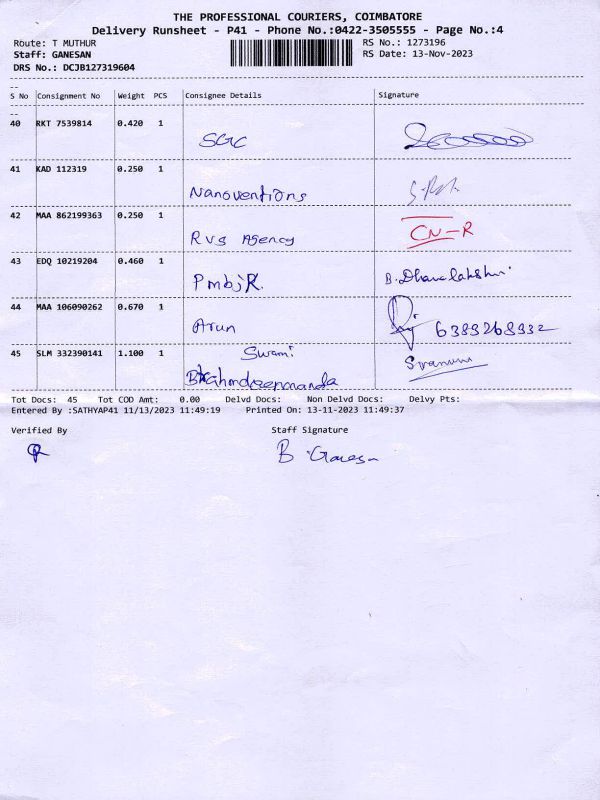 THE PROFESSIONAL COURIERS, COIMBATORE
Delivery Runsheet - P41 - Phone No.:0422-3505555 - Page No.:4
Route: T MUTHUR RS No.: 1273196
Staff: GANESAN RS Date: 13-Nov-2023
DRS No.: DCJB127319604
S No Consignment No Weight PCS Consignee Details Signature
40 RKT 7539814 0.420 1
SGC
41 KAD 112319 0.250 1
Nanoventions
42 MAA 862199363 0.250 1
Rvs Agency CN-R
43 EDQ 10219204 0.460 1
PmbjK. B. Dhanalakshmi
44 MAA 106090262 0.670 1
Arun 6389268932
45 SLM 332390141 1.100 1 Swami
Tot Docs: 45 Tot COD Amt: 0.00 Delvd Docs: Non Delvd Docs: Delvy Pts:
Entered By :SATHYAP41 11/13/2023 11:49:19 Printed On: 13-11-2023 11:49:37
Verified By Staff Signature
B. Ganesan